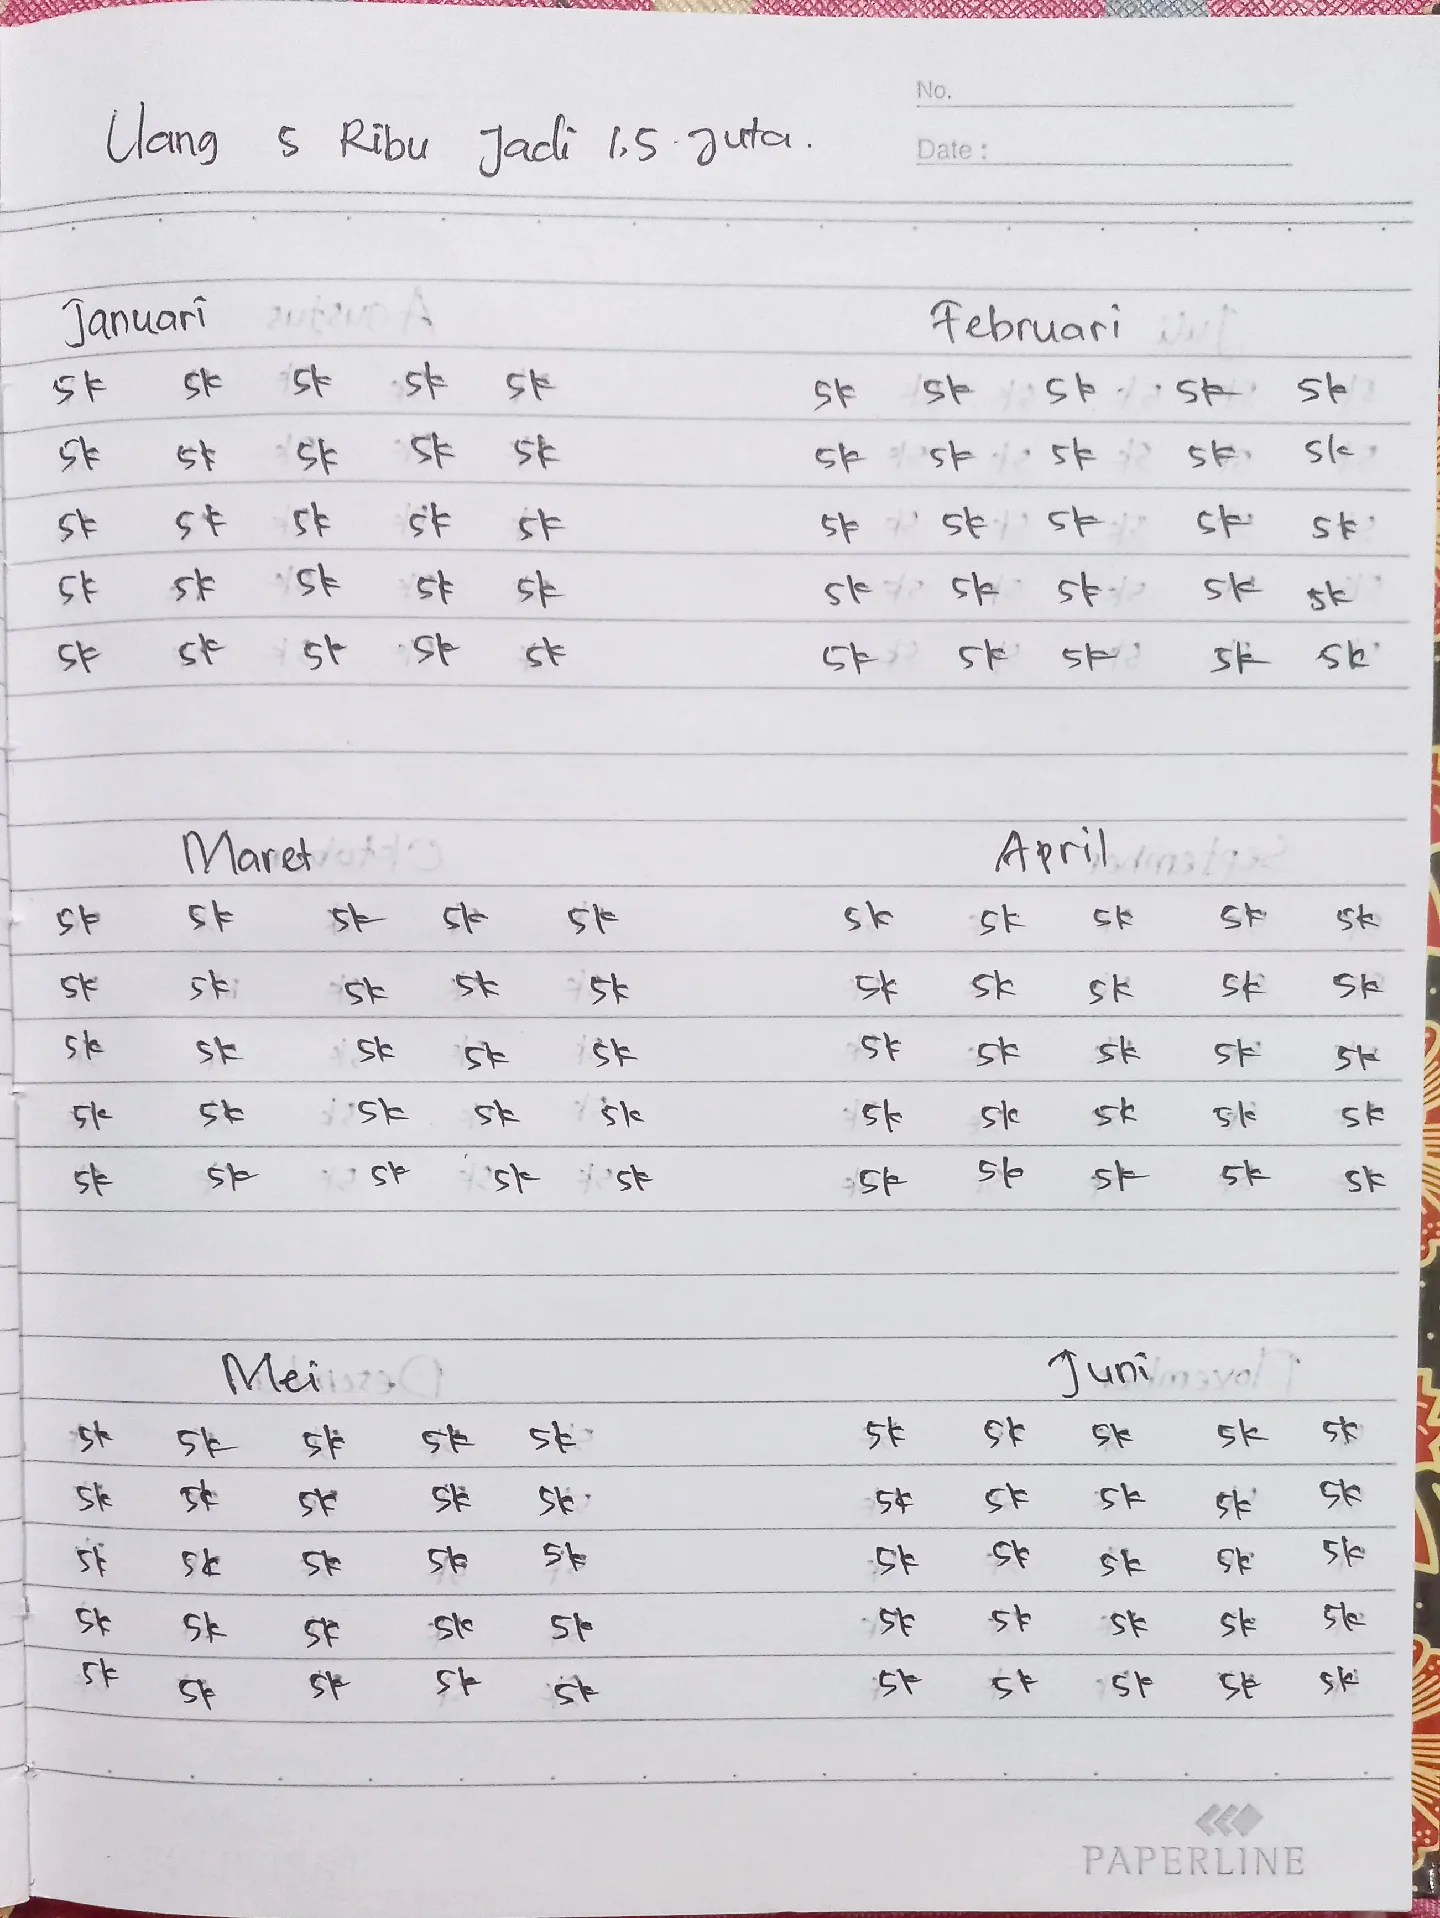 No.
Uang 5 Ribu Jadi 1,5 Juta.
Date :
Januari Februari
5k 5k 5k 5k 5k 5k 5k 5k 5k 5k
5k 5k 5k 5k 5k 5k 5k 5k 5k 5k
5k 5k 5k 5k 5k 5k 5k 5k 5k 5k
5k 5k 5k 5k 5k 5k 5k 5k 5k 5k
5k 5k 5k 5k 5k 5k 5k 5k 5k 5k
Maret April
5k 5k 5k 5k 5k 5k 5k 5k 5k 5k
5k 5k 5k 5k 5k 5k 5k 5k 5k 5k
5k 5k 5k 5k 5k 5k 5k 5k 5k 5k
5k 5k 5k 5k 5k 5k 5k 5k 5k 5k
5k 5k 5k 5k 5k 5k 5k 5k 5k 5k
Mei Juni
5k 5k 5k 5k 5k 5k 5k 5k 5k 5k
5k 5k 5k 5k 5k 5k 5k 5k 5k 5k
5k 5k 5k 5k 5k 5k 5k 5k 5k 5k
5k 5k 5k 5k 5k 5k 5k 5k 5k 5k
5k 5k 5k 5k 5k 5k 5k 5k 5k 5k
PAPERLINE